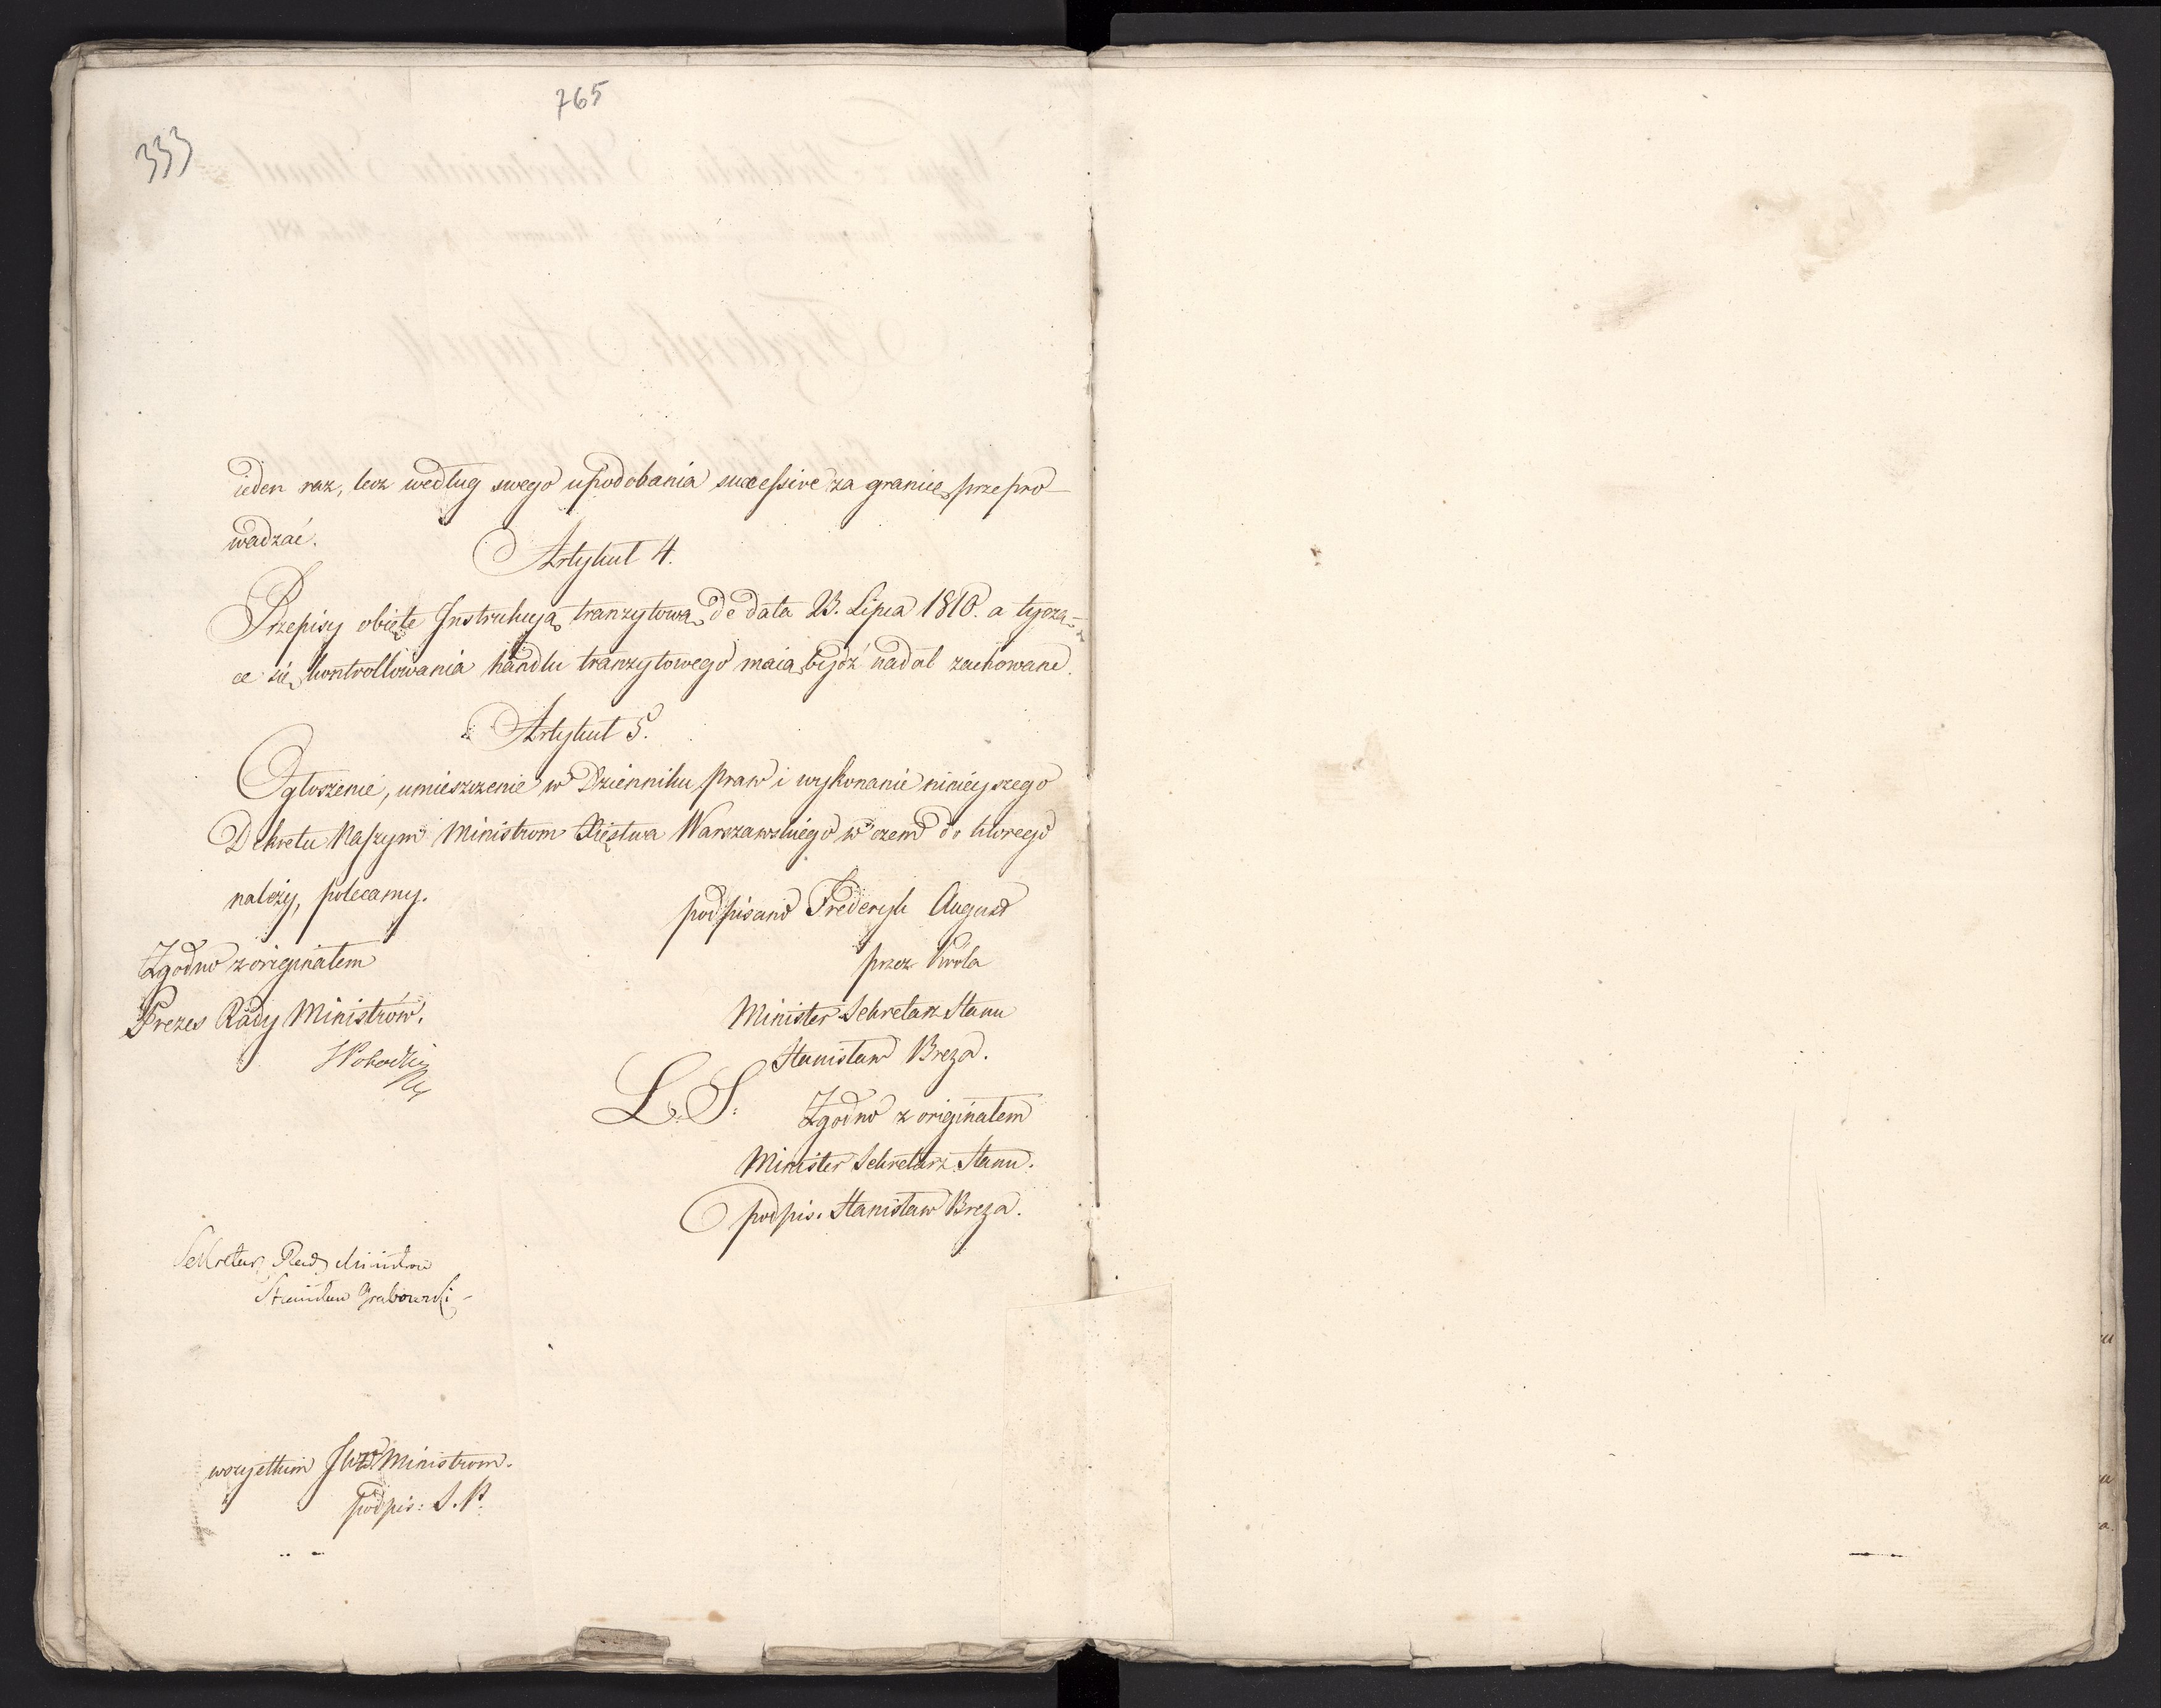 765
333
ieden raz, lecz według swego upodobania successive za granicę przepro-
wadzać.
Artykuł 4.
Przepisy obięte Instrukcyą tranzytową de data 23. Lipca 1810. a tycza-
ce się kontrollowania handlu tranzytowego maią bydź nadal zachowane.
Artykuł 5.
Ogłoszenie, umieszczenie w Dzienniku praw i wykonanie ninieyszego
Dekretu Naszym Ministrom Xięstwa Warszawskiego w czem do którego
należy, polecamy.
podpisano Frederyk August
Zgodno z originałem
przez Króla
Prezes Rady Ministrów.
Minister Sekretarz Stanu
Stanisław Breza.
L. S.
Zgodno z originałem
Minister Sekretarz Stanu.
podpis. Stanisław Breza.
Sekretarz Rady Ministrów
Stanisław Grabowski
wszystkim Ministrom.
podpis: S. P.